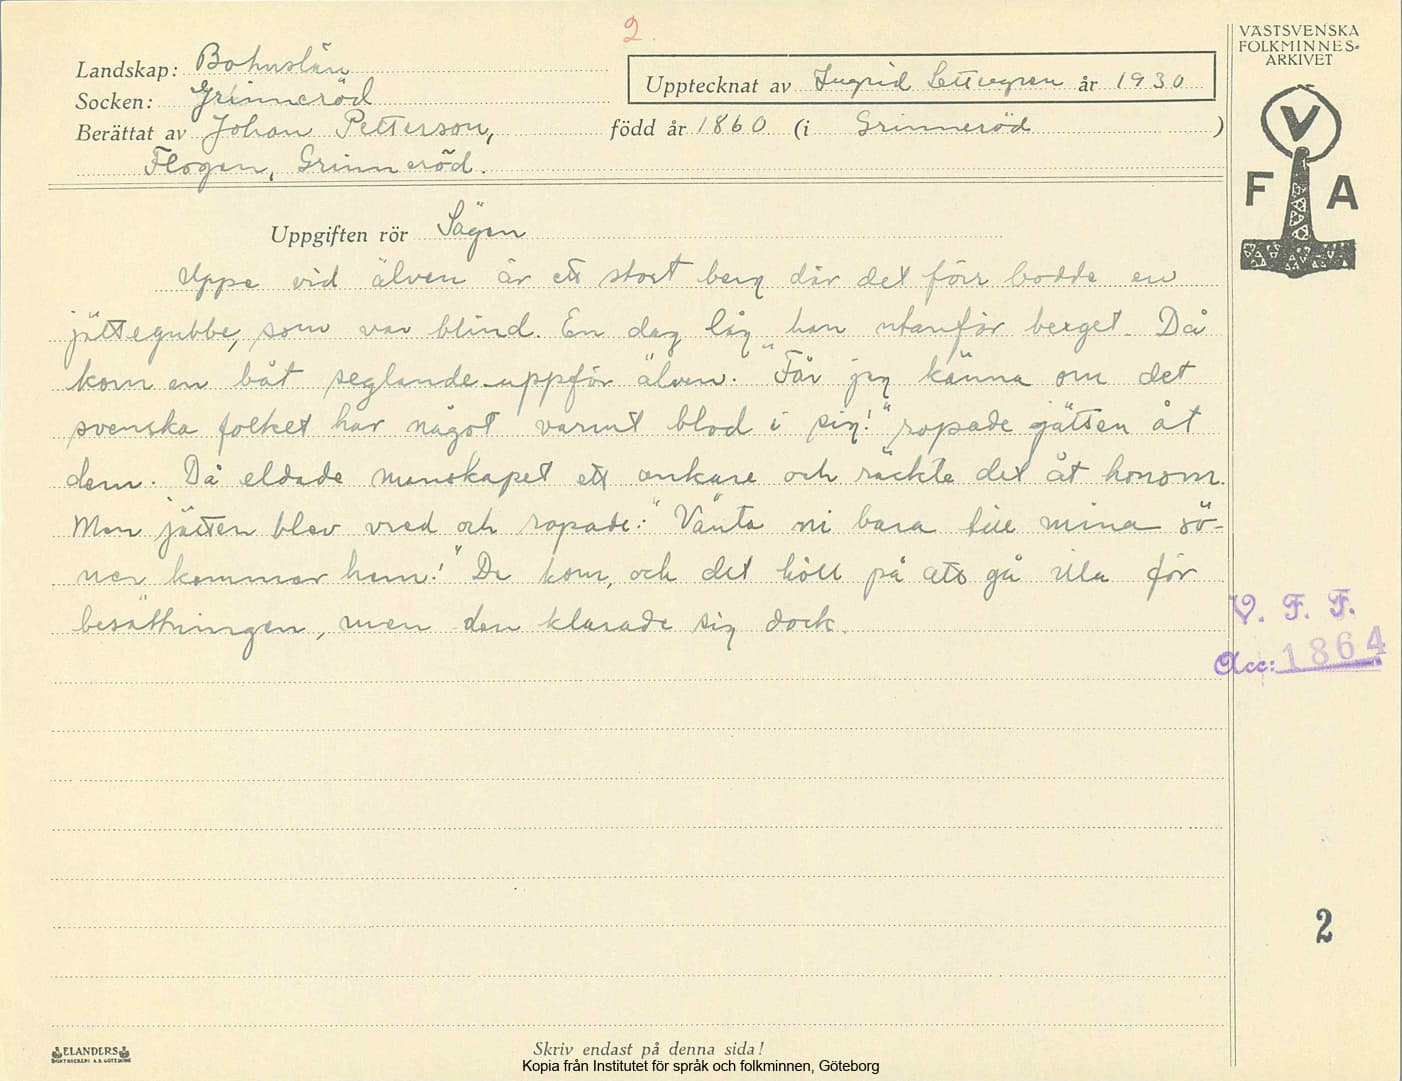 2.
VÄSTSVENSKA
FOLKMINNES-
ARKIVET
Landskap: Bohuslän
Upptecknat av Ingrid år 1930
Socken: Grinneröd
Berättat av Johan Petterson, född år 1860 (i Grinneröd)
Flogen, Grinneröd.
V
F A
Uppgiften rör Sägen
Uppe vid älven är ett stort berg där det förr bodde en
jättegubbe, som var blind. En dag låg han utanför berget. Då
kom en båt seglande uppför älven. "Får jag känna om det
svenska folket har något varmt blod i sig!" ropade jätten åt
dem. Då eldade manskapet ett ankare och räckte det åt honom.
Men jätten blev vred och ropade: "Vänta ni bara till mina sö-
ner kommer hem!" De kom, och det höll på att gå illa för
besättningen, men den klarade sig dock.
V. F. F.
Acc: 1864
2
ELANDERS
BOKTRYCKERI A.B. GÖTEBORG
Skriv endast på denna sida!
Kopia från Institutet för språk och folkminnen, Göteborg